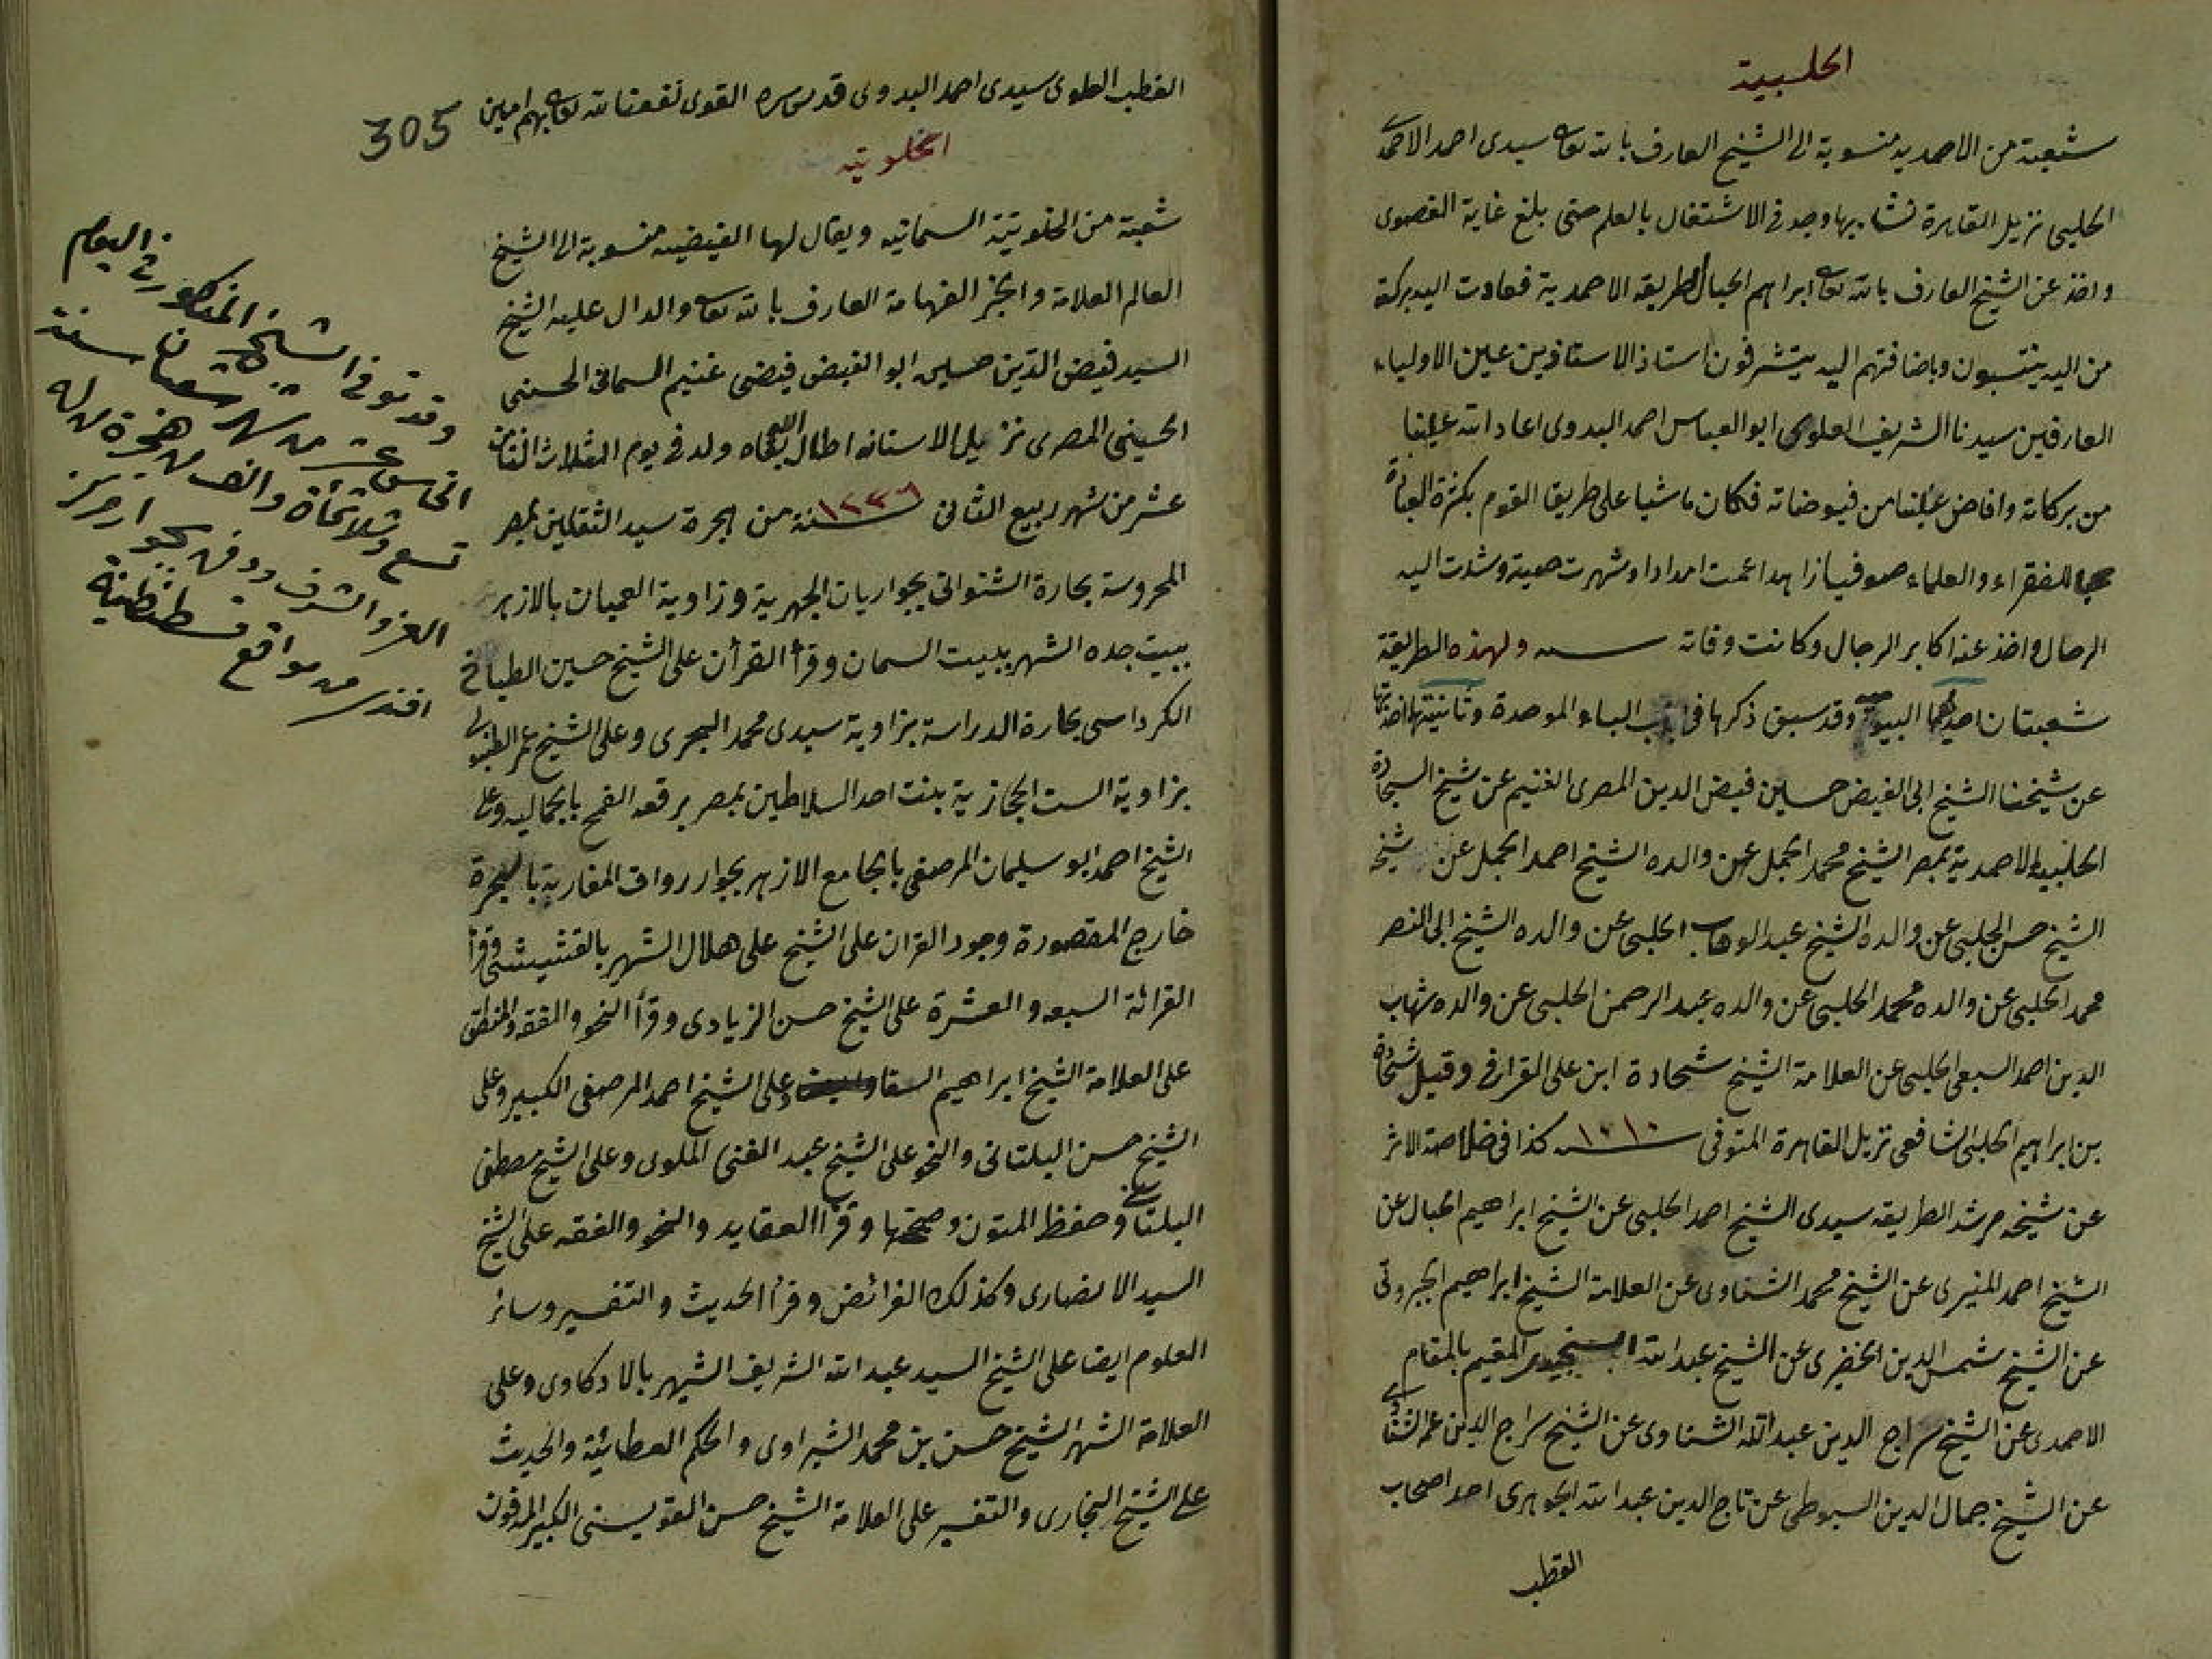 الحلبية
شعبة من الاحمدية منسوبة الى الشيخ العارف بالله تعالى سيدى احمد الاحمدى
الحلبى نزيل القاهرة نشا بها وجد فى الاشتغال بالعلم حتى بلغ غاية القصوى
واخذ عن الشيخ العارف بالله تعالى ابراهيم الحبال الطريقه الاحمدية فعادت اليه بركة
من اليه ينتسبون وباضافتهم اليه يتشرفون استاذ الاستاذين عين الاولياء
العارفين سيدنا الشريف العلوى ابو العباس احمد البدوى اعاد الله علينا
من بركاته وافاض علينا من فيوضاته فكان ماشيا على طريقا القوم بكثرة العبادة
للفقراء والعلماء صوفيا زاهدا عمت امداداه وشهرت صيته وشدت اليه
الرحال واخذ عنه اكابر الرجال وكانت وفاته سنه ولهذه الطريقة
شعبتان احديهما البيومية وقد سبق ذكرها فى باب الباء الموحدة وثانيتها اخذتها
عن شيخنا الشيخ ابى الفيض حسين فيض الدين المصرى الغنيم عن شيخ السجادة
الحلبية الاحمدية بمصر الشيخ محمد الجمل عن والده الشيخ احمد الجمل عن شيخه
الشيخ حسن الحلبى عن والده الشيخ عبد الوهاب الحلبى عن والده الشيخ ابى النصر
محمد الحلبى عن والده محمد الحلبى عن والده عبد الرحمن الحلبى عن والده شهاب
الدين احمد السبعى الحلبى عن العلامة الشيخ شحادة ابن على القرافى وقيل شحادة
بن ابراهيم الحلبى الشافعى نزيل القاهرة المتوفى سنه ١٠١٠ كذا فى خلاصة الاثر
عن شيخه مرشد الطريقه سيدى الشيخ احمد الحلبى عن الشيخ ابراهيم الحبال عن
الشيخ احمد المنيرى عن الشيخ محمد الشناوى عن العلامة الشيخ ابراهيم الجبروتى
عن الشيخ شمس الدين الخضرى عن الشيخ عبد الله المقيم بالمقام
الاحمدى عن الشيخ سراج الدين عبد الله الشناوى عن الشيخ سراج الدين عمر الشناوى
عن الشيخ جمال الدين السيوطى عن تاج الدين عبد الله الجوهرى احد اصحاب
القطب
القطب العلوى سيدى احمد البدوى قدس سره القوى نفعنا الله تعالى بهم امين
305
الخلوتيه
شعبة من الخلوتية السمانيه ويقال لها الفيضيه منسوبة الى الشيخ
العالم العلامة والحبر الفهامة العارف بالله تعالى والدال عليه الشيخ
السيد فيض الدين حسين ابو الفيض فيضى غنيم السمانى الحسنى
الحسينى المصرى نزيل الاستانه اطال الله بقاه ولد فى يوم الثلاث الثامن
عشر من شهر ربيع الثانى سنة من هجرة سيد الثقلين بمصر
المحروسة بحارة الشنوانى بجوار باب الجهرية وزاوية العميان بالازهر
ببيت جده الشهير ببيت السمان وقرأ القرأن على الشيخ حسين الطباخ
الكرداسى بحارة الدراسة بزاوية سيدى محمد البحرى وعلى الشيخ عمر
بزاوية الست الحجازية بنت احد السلاطين بمصر برقعه القمح بالجماليه وعلى
الشيخ احمد ابو سليمان المرصفى بالجامع الازهر بجوار رواق المغاربة
خارج المقصورة وجود القران على الشيخ على هلال الشهير بالقشيشى وقرأ
القرائة السبعه والعشرة على الشيخ حسن الزيادى وقرأ النحو والفقه والمنطق
على العلامة الشيخ ابراهيم السقا وعلى الشيخ احمد المرصفى الكبير وعلى
الشيخ حسن البلتانى والنحو على الشيخ عبد الغنى الملوى وعلى الشيخ مصطفى
البلتانى وحفظ المتون وصححها وقرأ العقايد والنحو والفقه على الشيخ
السيد الانصارى وكذلك الفرائض وقرأ الحديث والتفسير وسائر
العلوم ايضا على الشيخ السيد عبد الله الشريف الشهير بالادكاوى وعلى
العلامة الشهير الشيخ حسن بن محمد الشبراوى والحكم العطائية والحديث
على الشيخ البخارى والتفسير على العلامة الشيخ حسن القويسنى الكبير المدفون
وقد توفى الشيخ المذكور فى اليوم
الخامس عشر من شهر شعبان سنة
تسع وثلاثمأة والف من هجرة من له
العز والشرف ودفن بجوار مركز
افندى من مواقع قسطنطينية